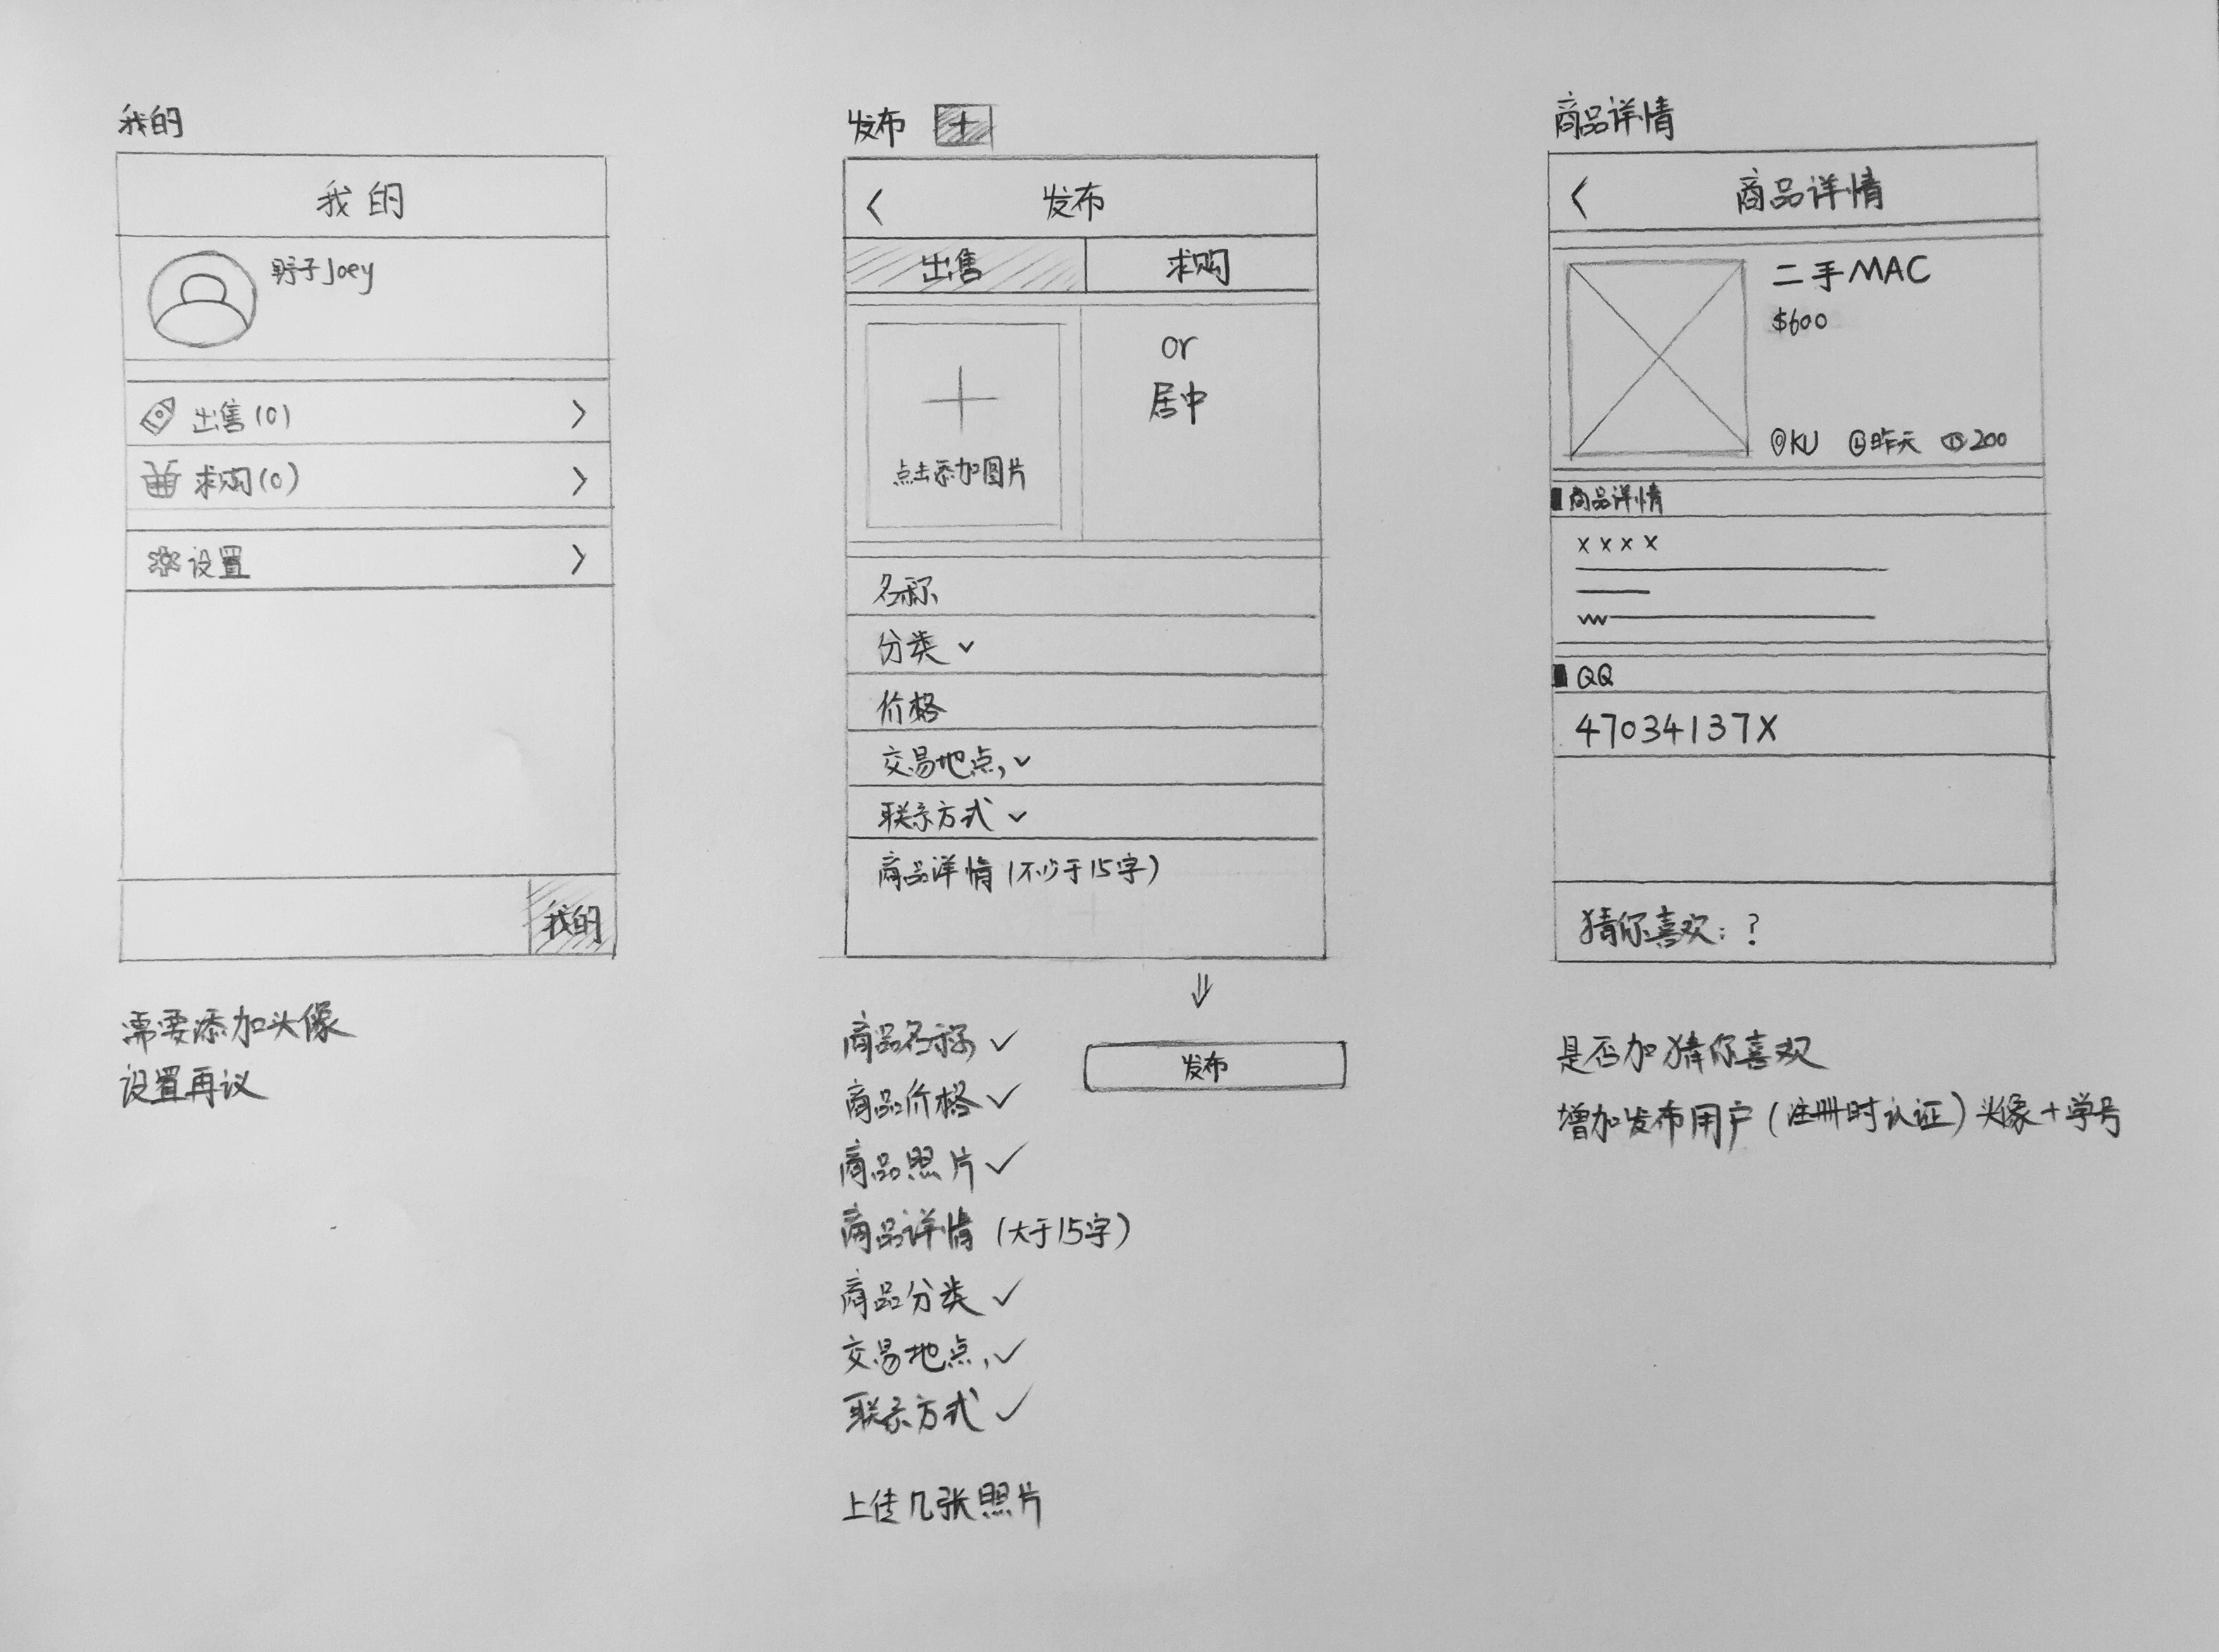 我的
我的
野子Joey
出售(0)
求购(0)
设置
我的
需要添加头像
设置再议
发布
发布
出售 求购
点击添加图片
or
居中
名称
分类
价格
交易地点
联系方式
商品详情(不少于15字)
发布
商品名称 ✓
商品价格 ✓
商品照片 ✓
商品详情(大于15字)
商品分类 ✓
交易地点 ✓
联系方式 ✓
上传几张照片
商品详情
商品详情
二手MAC
$600
KU 昨天 200
商品详情
x x x x
QQ
47034137X
猜你喜欢:?
是否加猜你喜欢
增加发布用户(注册时认证)头像+学号